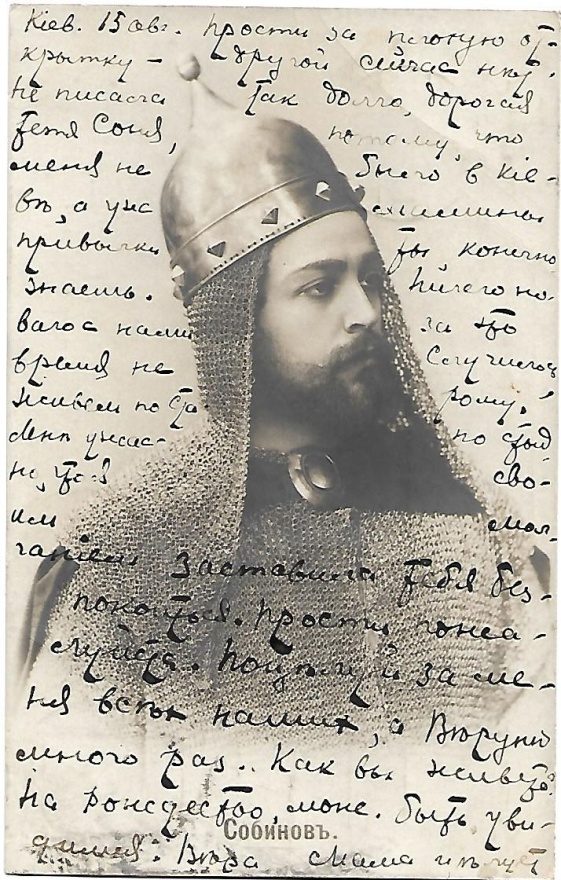 Кіев. 15 авг. Прости за плохую от-
крытку – другой сейчас нѣт.
Не писала так долго, дорогая
тетя Соня, потому, что
меня не было в Кіе-
вѣ, а уж
привычки ты конечно
знаешь. Ничего но-
ваго с нами за это
время не случилось
живем по старому.
Мнѣ ужас- но стыд
но, что я сво-
им мол-
чаніем заставила тебя без-
покоиться. Прости пожа-
луйста. Поцѣлуй за ме-
ня всѣх наших, а Вѣруню
много раз. Как вы живете?
На Рождество, може. быть уви-
Собиновъ.
димся. Вѣра Мама цѣлует